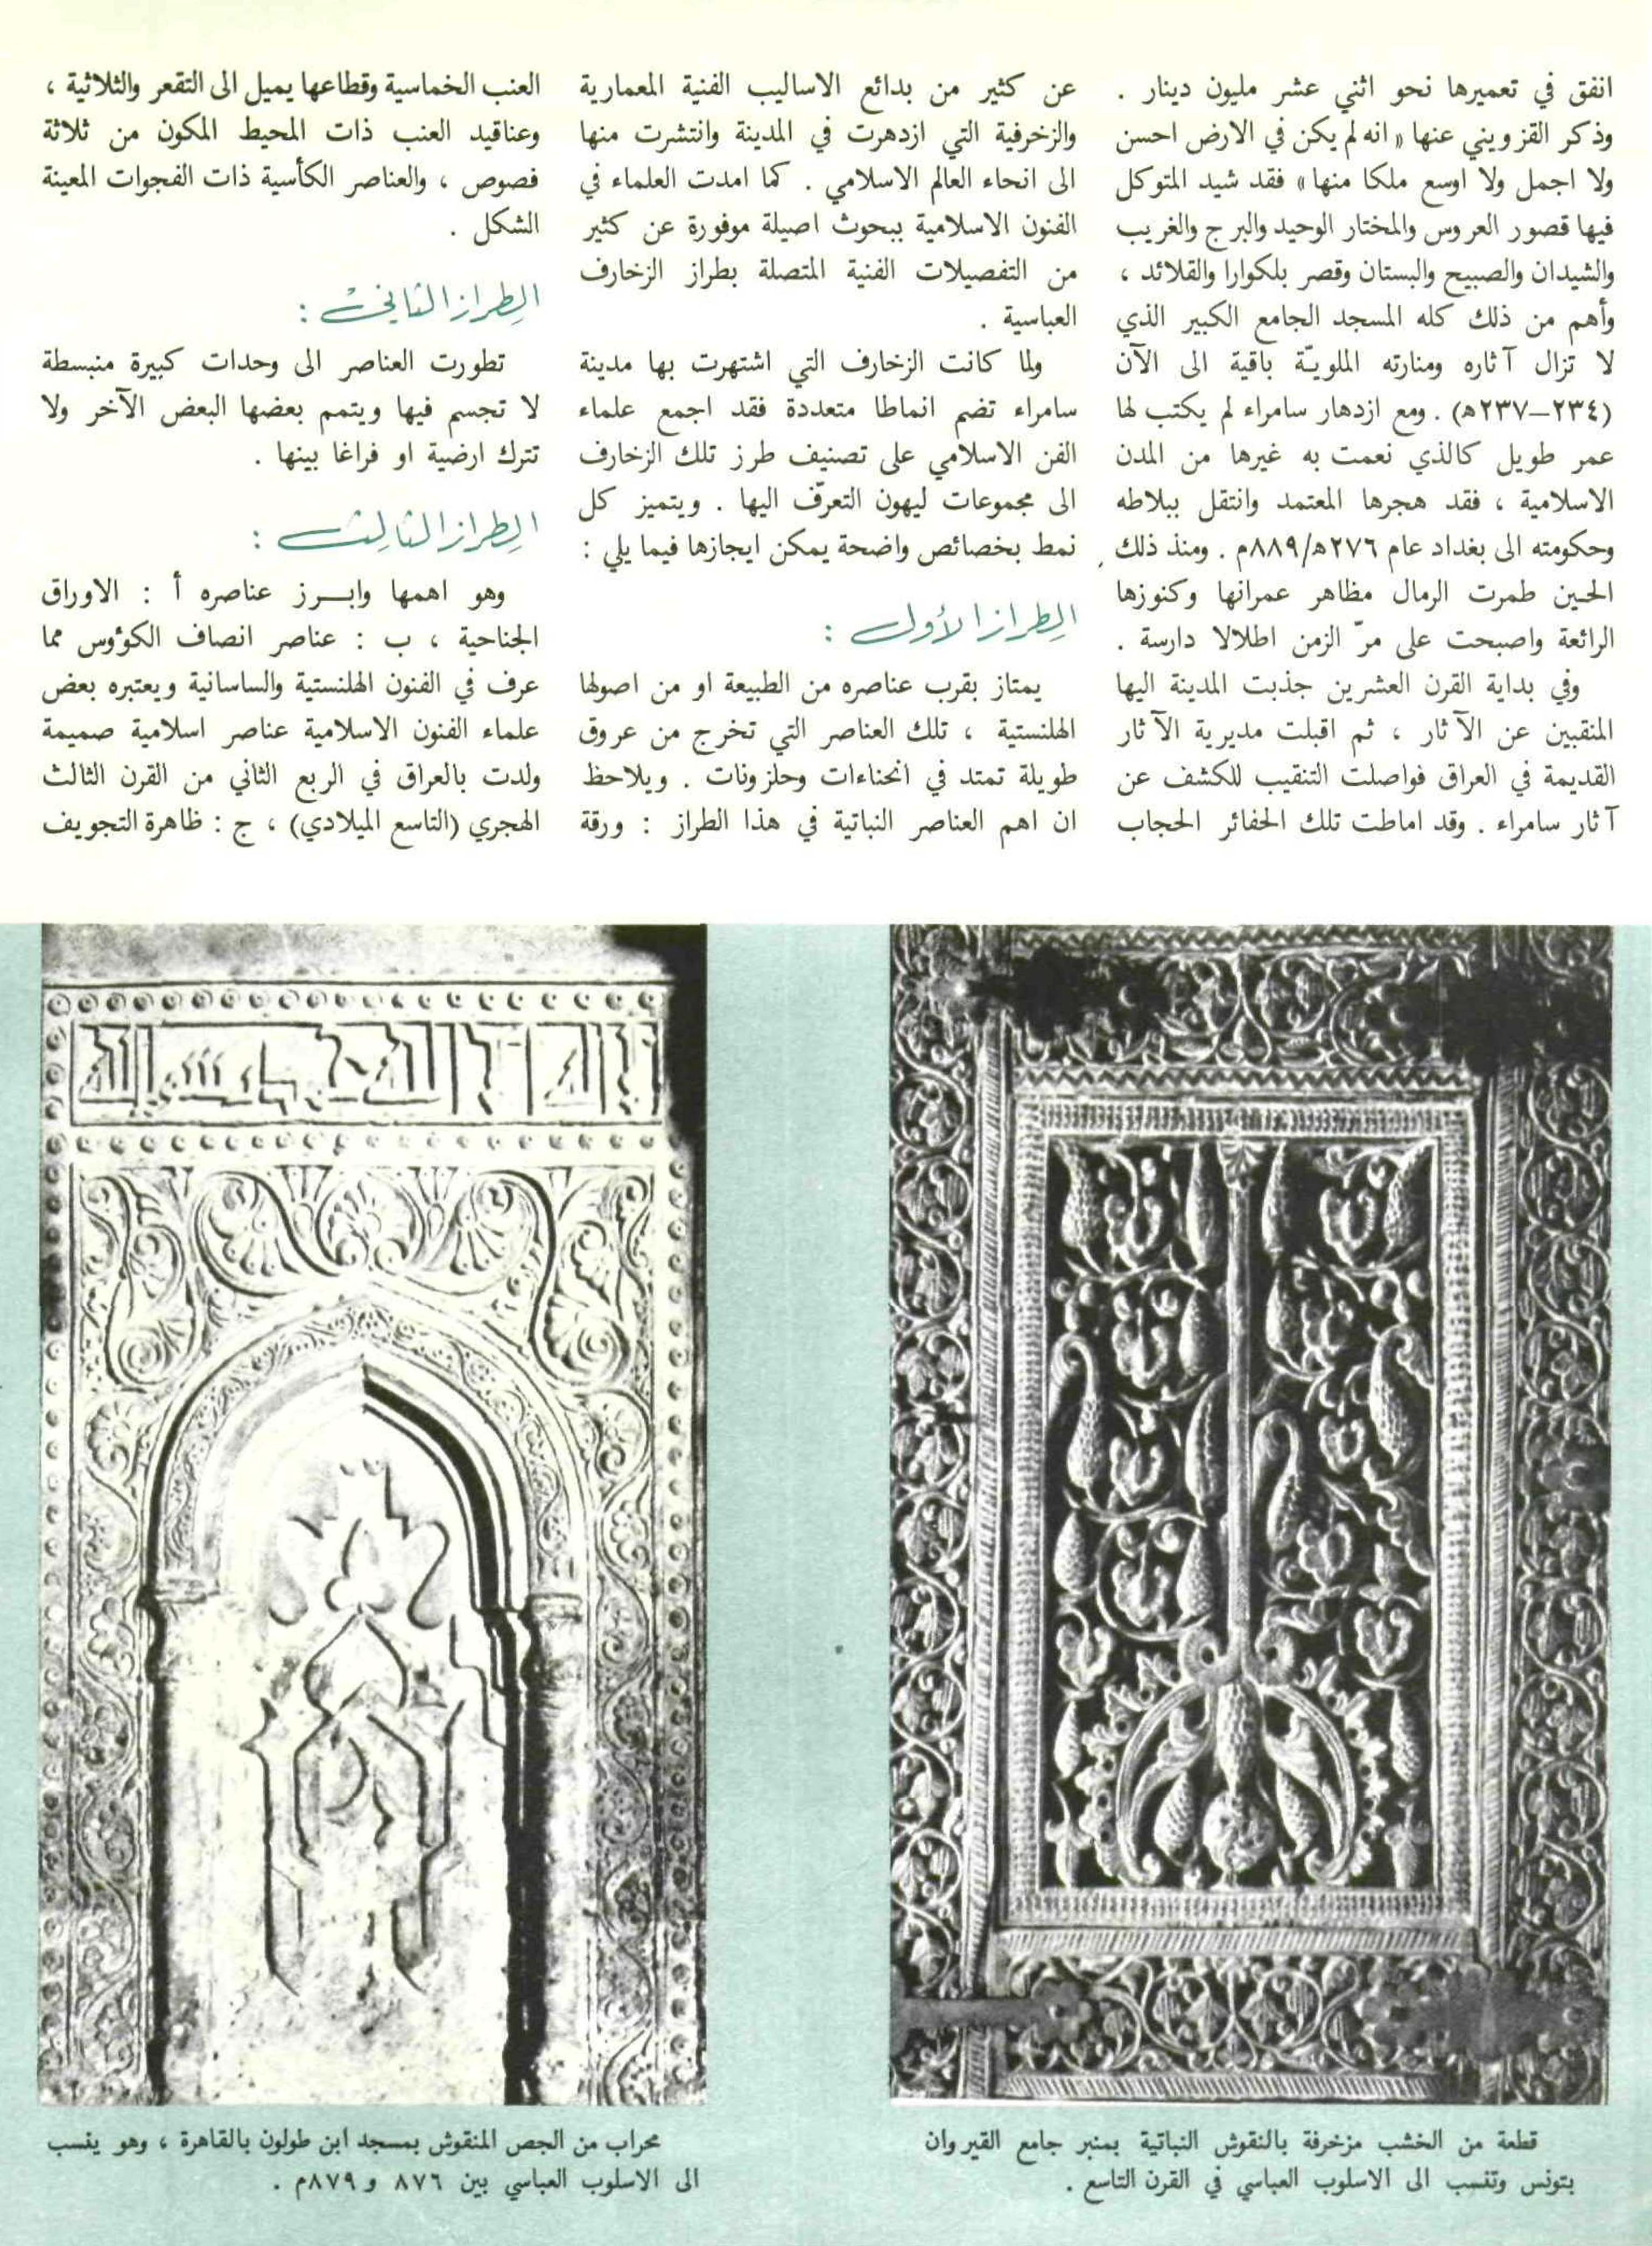 انفق في تعميرها نحو اثني عشر مليون دينار .
وذكر القزويني عنها « انه لم يكن في الارض احسن
ولا اجمل ولا اوسع ملكا منها » فقد شيد المتوكل
فيها قصور العروس والمختار الوحيد والبرج والغريب
والشيدان والصبيح والبستان وقصر بلكوارا والقلائد ،
وأهم من ذلك كله المسجد الجامع الكبير الذي
لا تزال آثاره ومنارته الملويّة باقية الى الآن
(٢٣٤–٢٣٧ه) . ومع ازدهار سامراء لم يكتب لها
عمر طويل كالذي نعمت به غيرها من المدن
الاسلامية ، فقد هجرها المعتمد وانتقل ببلاطه
وحكومته الى بغداد عام ٢٧٦ه/٨٨٩م . ومنذ ذلك
الحين طمرت الرمال مظاهر عمرانها وكنوزها
الرائعة واصبحت على مرّ الزمن اطلالا دارسة .
وفي بداية القرن العشرين جذبت المدينة اليها
المنقبين عن الآثار ، ثم اقبلت مديرية الآثار
القديمة في العراق فواصلت التنقيب للكشف عن
آثار سامراء . وقد اماطت تلك الحفائر الحجاب
عن كثير من بدائع الاساليب الفنية المعمارية
والزخرفية التي ازدهرت في المدينة وانتشرت منها
الى انحاء العالم الاسلامي . كما امدت العلماء في
الفنون الاسلامية ببحوث اصيلة موفورة عن كثير
من التفصيلات الفنية المتصلة بطراز الزخارف
العباسية .
ولما كانت الزخارف التي اشتهرت بها مدينة
سامراء تضم انماطا متعددة فقد اجمع علماء
الفن الاسلامي على تصنيف طرز تلك الزخارف
الى مجموعات ليهون التعرّف اليها . ويتميز كل
نمط بخصائص واضحة يمكن ايجازها فيما يلي :
الطراز الأول :
يمتاز بقرب عناصره من الطبيعة او من اصولها
الهلنستية ، تلك العناصر التي تخرج من عروق
طويلة تمتد في انحناءات وحلزونات . ويلاحظ
ان اهم العناصر النباتية في هذا الطراز : ورقة
العنب الخماسية وقطاعها يميل الى التقعر والثلاثية ،
وعناقيد العنب ذات المحيط المكون من ثلاثة
فصوص ، والعناصر الكأسية ذات الفجوات المعينة
الشكل .
الطراز الثاني :
تطورت العناصر الى وحدات كبيرة منبسطة
لا تجسم فيها ويتمم بعضها البعض الآخر ولا
تترك ارضية او فراغا بينها .
الطراز الثالث :
وهو اهمها وابـــرز عناصره أ : الاوراق
الجناحية ، ب : عناصر انصاف الكؤوس مما
عرف في الفنون الهلنستية والساسانية ويعتبره بعض
علماء الفنون الاسلامية عناصر اسلامية صميمة
ولدت بالعراق في الربع الثاني من القرن الثالث
الهجري (التاسع الميلادي) ، ج : ظاهرة التجويف
قطعة من الخشب مزخرفة بالنقوش النباتية بمنبر جامع القيروان
بتونس وتنسب الى الاسلوب العباسي في القرن التاسع .
محراب من الجص المنقوش بمسجد ابن طولون بالقاهرة ، وهو ينسب
الى الاسلوب العباسي بين ٨٧٦ و ٨٧٩م .